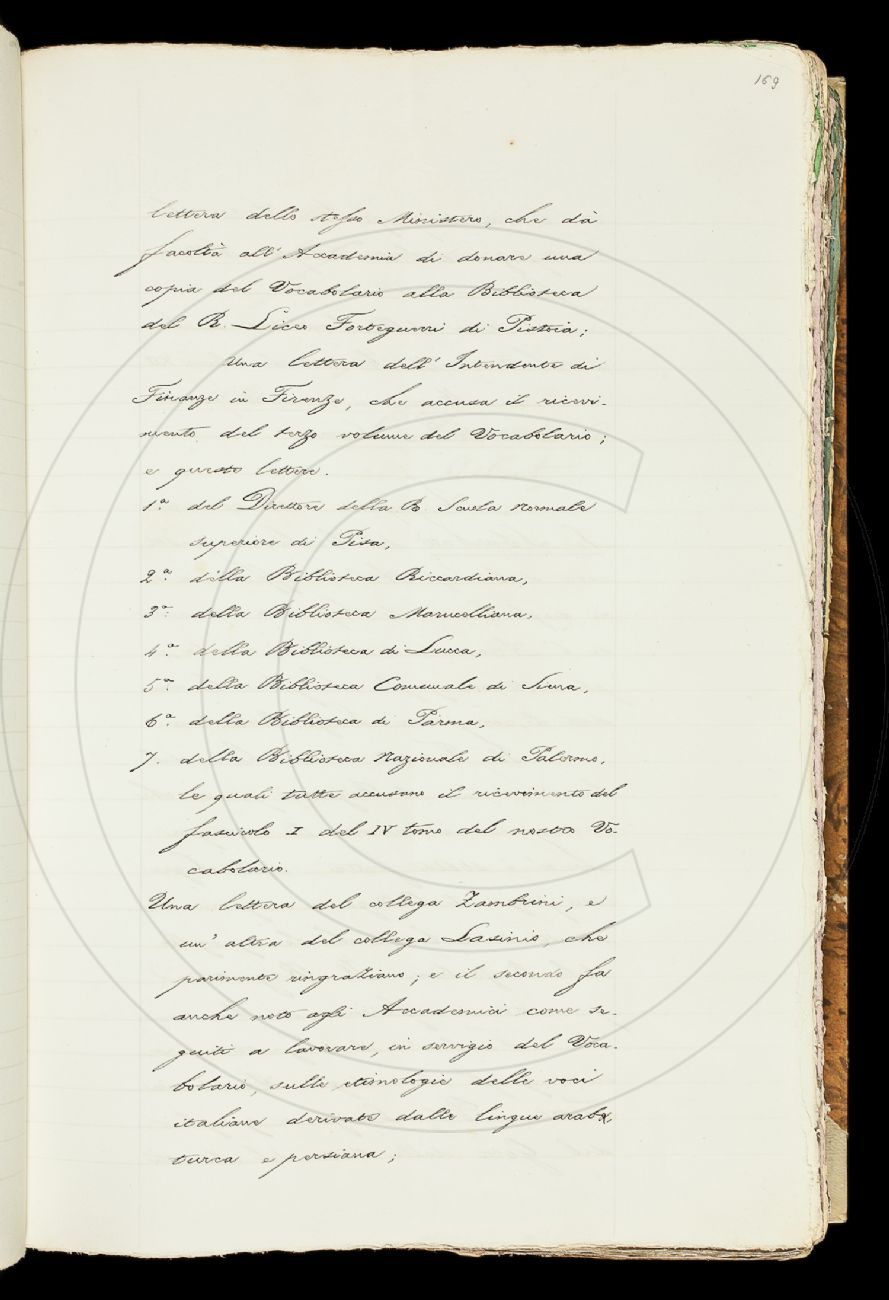 169
lettera dello stesso Ministero, che dà
facoltà all'Accademia di donare una
copia del Vocabolario alla Biblioteca
del R. Liceo Forteguerri di Pistoia;
Una lettera dell'Intendente di
Finanze in Firenze, che accusa il ricevi-
mento del terzo volume del Vocabolario;
e queste lettere.
1ª. del Direttore della R. Scuola Normale
superiore di Pisa,
2ª. della Biblioteca Riccardiana,
3ª. della Biblioteca Marucelliana,
4ª. della Biblioteca di Lucca,
5ª. della Biblioteca Comunale di Siena,
6ª. della Biblioteca di Parma,
7. della Biblioteca Nazionale di Palermo,
le quali tutte accusano il ricevimento del
fascicolo I del IV tomo del nostro Vo-
cabolario.
Una lettera del collega Zambrini, e
un'altra del collega Lasinio, che
parimente ringraziano; e il secondo fa
anche noto agli Accademici come se-
guiti a lavorare, in servigio del Voca-
bolario, sulle etimologie delle voci
italiane derivate dalle lingue araba,
turca e persiana;